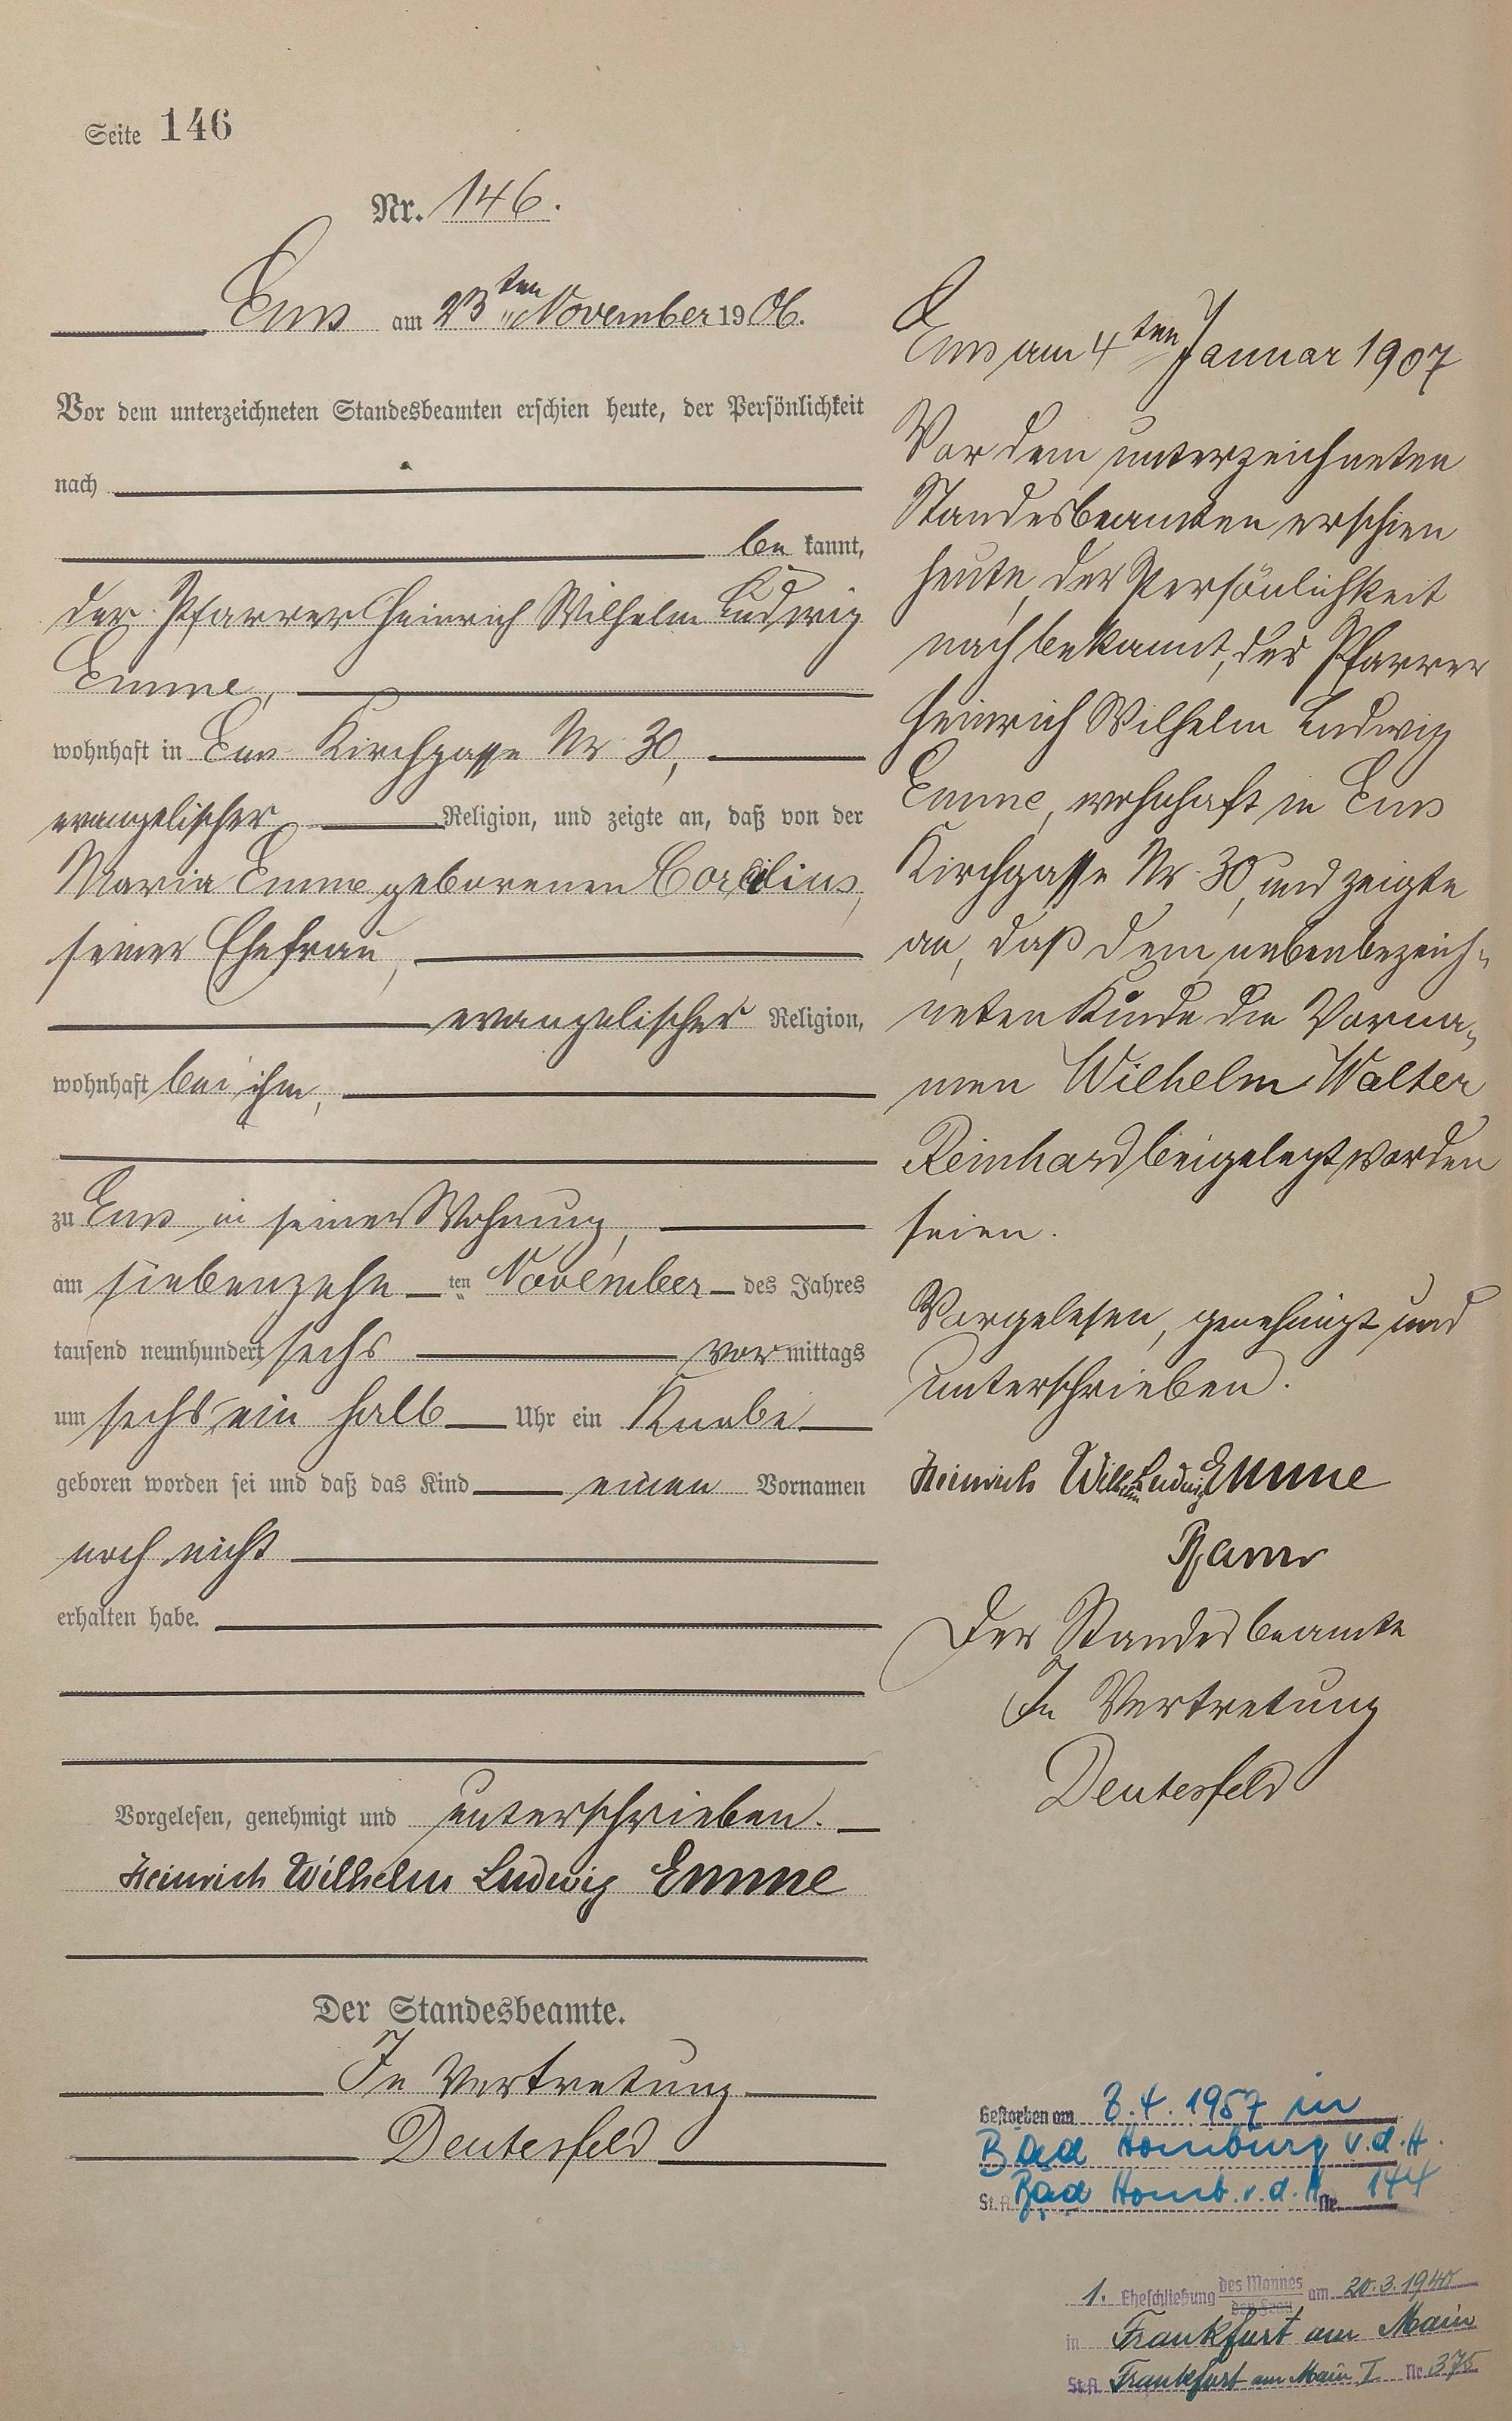 Seite 146
Nr. 146.
Ems am 23ten November 1906.
Vor dem unterzeichneten Standesbeamten erschien heute, der Persönlichkeit
nach
be kannt,
der Pfarrer Heinrich Wilhelm Ludwig
Emme,
wohnhaft in Ems Kirchgasse Nr 30,
evangelischer Religion, und zeigte an, daß von der
Maria Emme geborenen
seiner Ehefrau,
evangelischer Religion,
wohnhaft bei ihm,
zu Ems in seiner Wohnung,
am siebenzehn ten November des Jahres
tausend neunhundert sechs vor mittags
um sechs ein halb Uhr ein Knabe
geboren worden sei und daß das Kind einen Vornamen
noch nicht
erhalten habe.
Vorgelesen, genehmigt und unterschrieben.
Heinrich Wilhelm Ludwig Emme
Der Standesbeamte.
In Vertretung
Deutesfeld
Ems am 4ten Januar 1907
Vor dem unterzeichneten
Standesbeamten erschien
heute, der Persönlichkeit
nach bekannt, der Pfarrer
Heinrich Wilhelm Ludwig
Emme, wohnhaft in Ems
Kirchgasse Nr. 30, und zeigte
an, daß dem nebenbezeich-
neten Kinde die Vorna-
men Wilhelm Walter
Reinhard beigelegt worden
seien.
Vorgelesen, genehmigt und
unterschrieben.
Heinrich Wilhelm Ludwig Emme
Pfarrer
Der Standesbeamte
In Vertretung
Deutesfeld
Gestorben am 8.4.1957 in
Bad Homburg v.d.H.
St.A. Bad Homb. v.d.H. Nr. 144
1. Eheschließung des Mannes der Frau am 20.3.1940
in Frankfurt am Main
St.A. Frankfurt am Main I Nr. 375